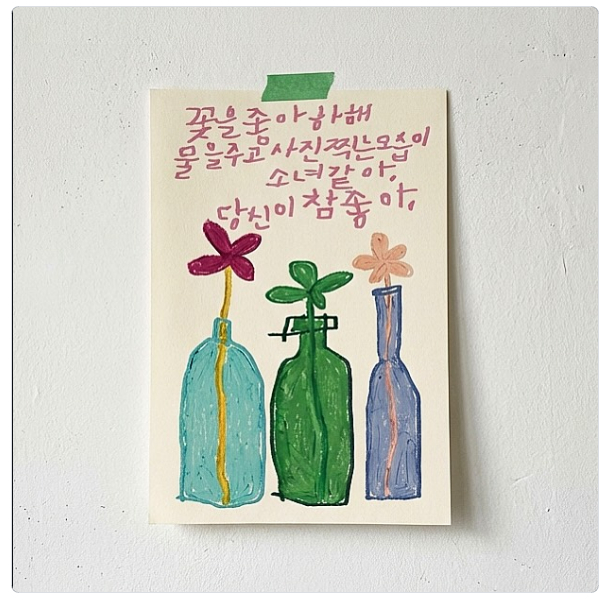 꽃을 좋아하해
물을주고 사진찍는모습이
소녀같아.
당신이 참 좋아.